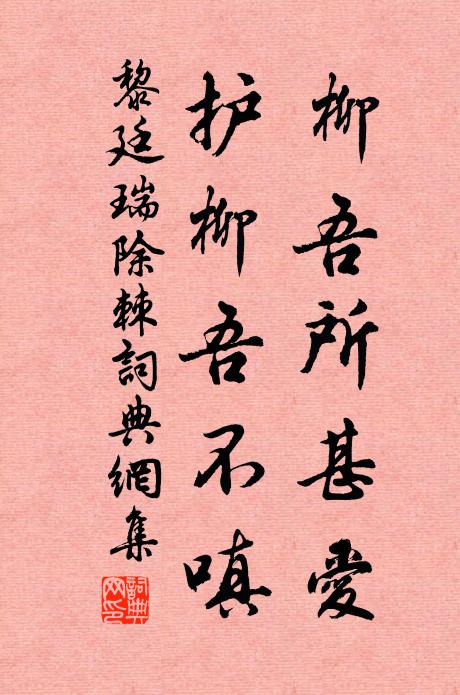 柳吾所甚愛
护柳吾不嗔
黎廷瑞除棘詞典網集
詞典网印